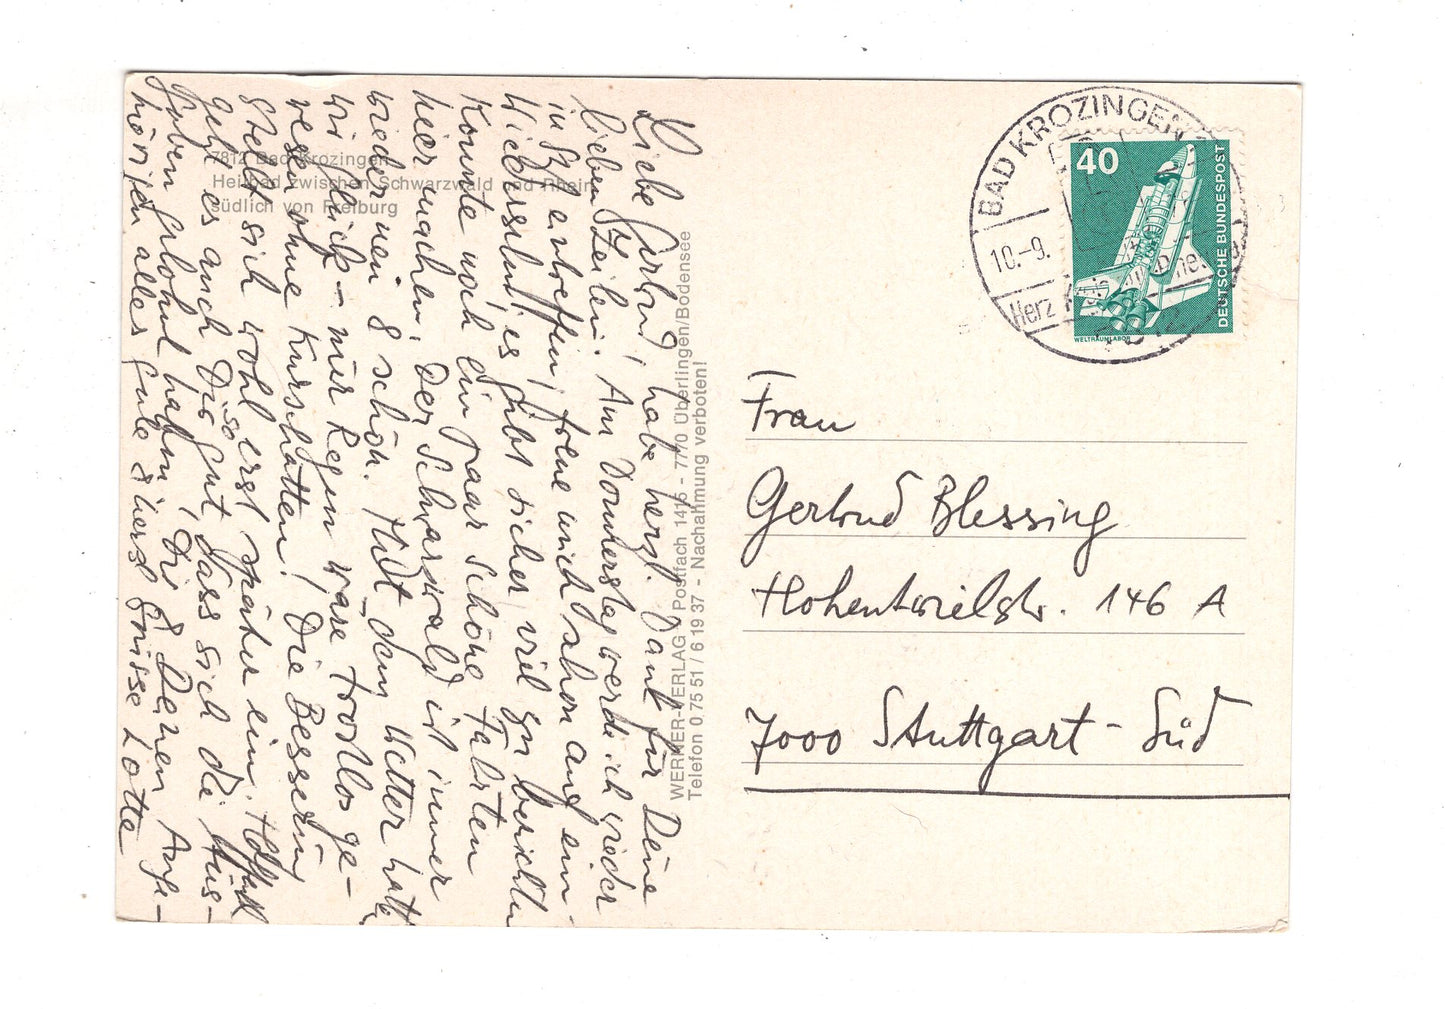 7812 Bad Krozingen
Heilbad zwischen Schwarzwald und Rhein
südlich von Freiburg
Liebe Gertrud, habe herzl. Dank für Deine
lieben Zeilen. Am Donnerstag werde ich wieder
in St. eintreffen, freue mich schon auf ein
Wiedersehn, es gibt sicher viel zu berichten
Konnte noch ein paar schöne Fahrten
hier machen, der Schwarzwald ist immer
wieder neu & schön. Mit dem Wetter hatten
wir Glück – nur Regen wäre trostlos ge-
wesen ohne Kurschatten! Die Besserung
stellt sich wohl erst später ein. Hoffentl.
geht es auch Dir so gut, dass sich die Aus-
gaben gelohnt haben, Dir & Deinen Ange-
hörigen alles gute & herzl. Grüsse Lotte
WERNER-VERLAG Postfach 1415 - 7770 Überlingen/Bodensee
Telefon 0 75 51 / 6 19 37 - Nachahmung verboten!
BAD KROZINGEN
10.-9.
Herz
7812
40
DEUTSCHE BUNDESPOST
WELTRAUMLABOR
Frau
Gertrud Blessing
Hohentwielstr. 146 A
7000 Stuttgart-Süd